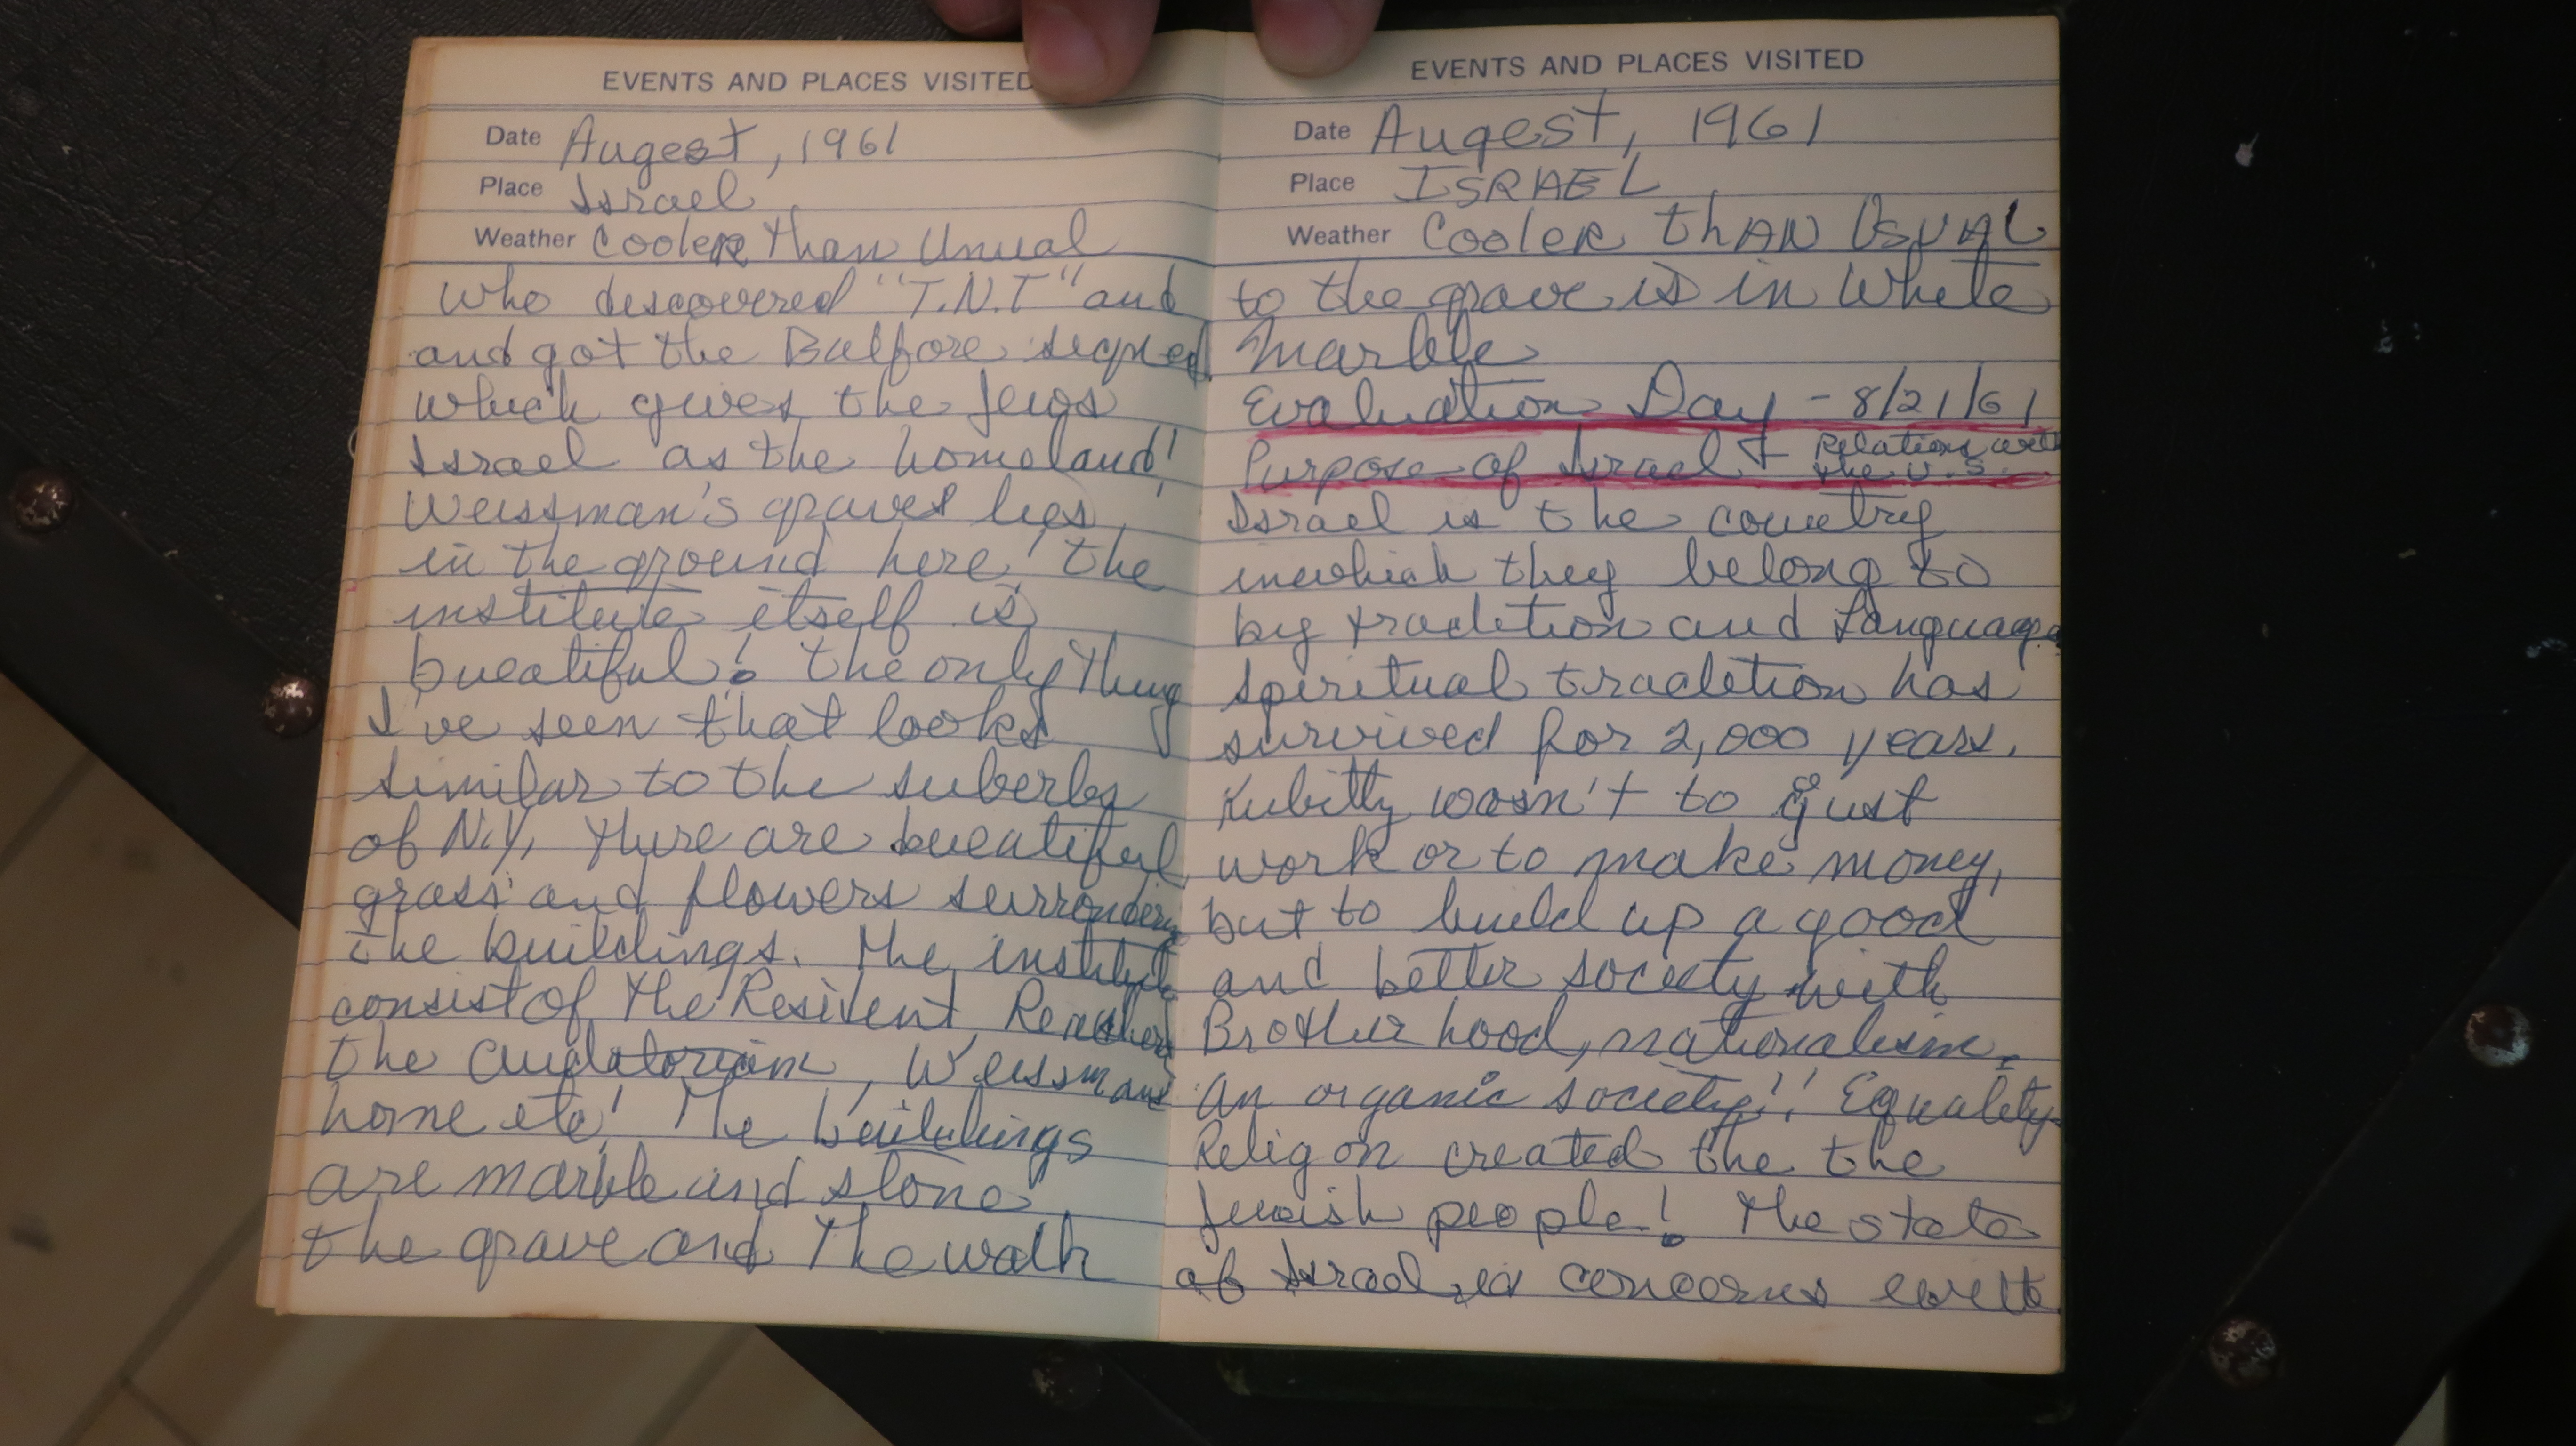 EVENTS AND PLACES VISITED
Date Augest, 1961
Place Israel
Weather Cooler than Unual
who descovered "T.N.T" and
and got the Balfore signed
which gives the Jews
Israel as the homeland!
Weissman's graves lies
in the ground here! the
institute itself is
bueatiful! the only thing
I've seen that looks
similar to the suberbs
of N.Y, there are bueatiful
grass and flowers surronding
the buildings. The institute
consist of the Resident
the audatorium, Weissmans
home etc! The buildings
are marble and stone
the grave and the walk
EVENTS AND PLACES VISITED
Date Augest, 1961
Place ISRAEL
Weather Cooler thAN UsUAL
to the grave is in White
Marble
Evaluation Day - 8/21/61
Purpose of Israel + Relations with
the U.S.
Israel is the country
inwhich they belong to
by tradition and Language
spiritual tradition has
survived for 2,000 years.
Kubitty wasn't to gust
work or to make money,
but to build up a good
and better society with
Brother hood, nationalism.
An organic society!! Equality
Religon created the the
Jewish people! The state
of Israel is concerns with